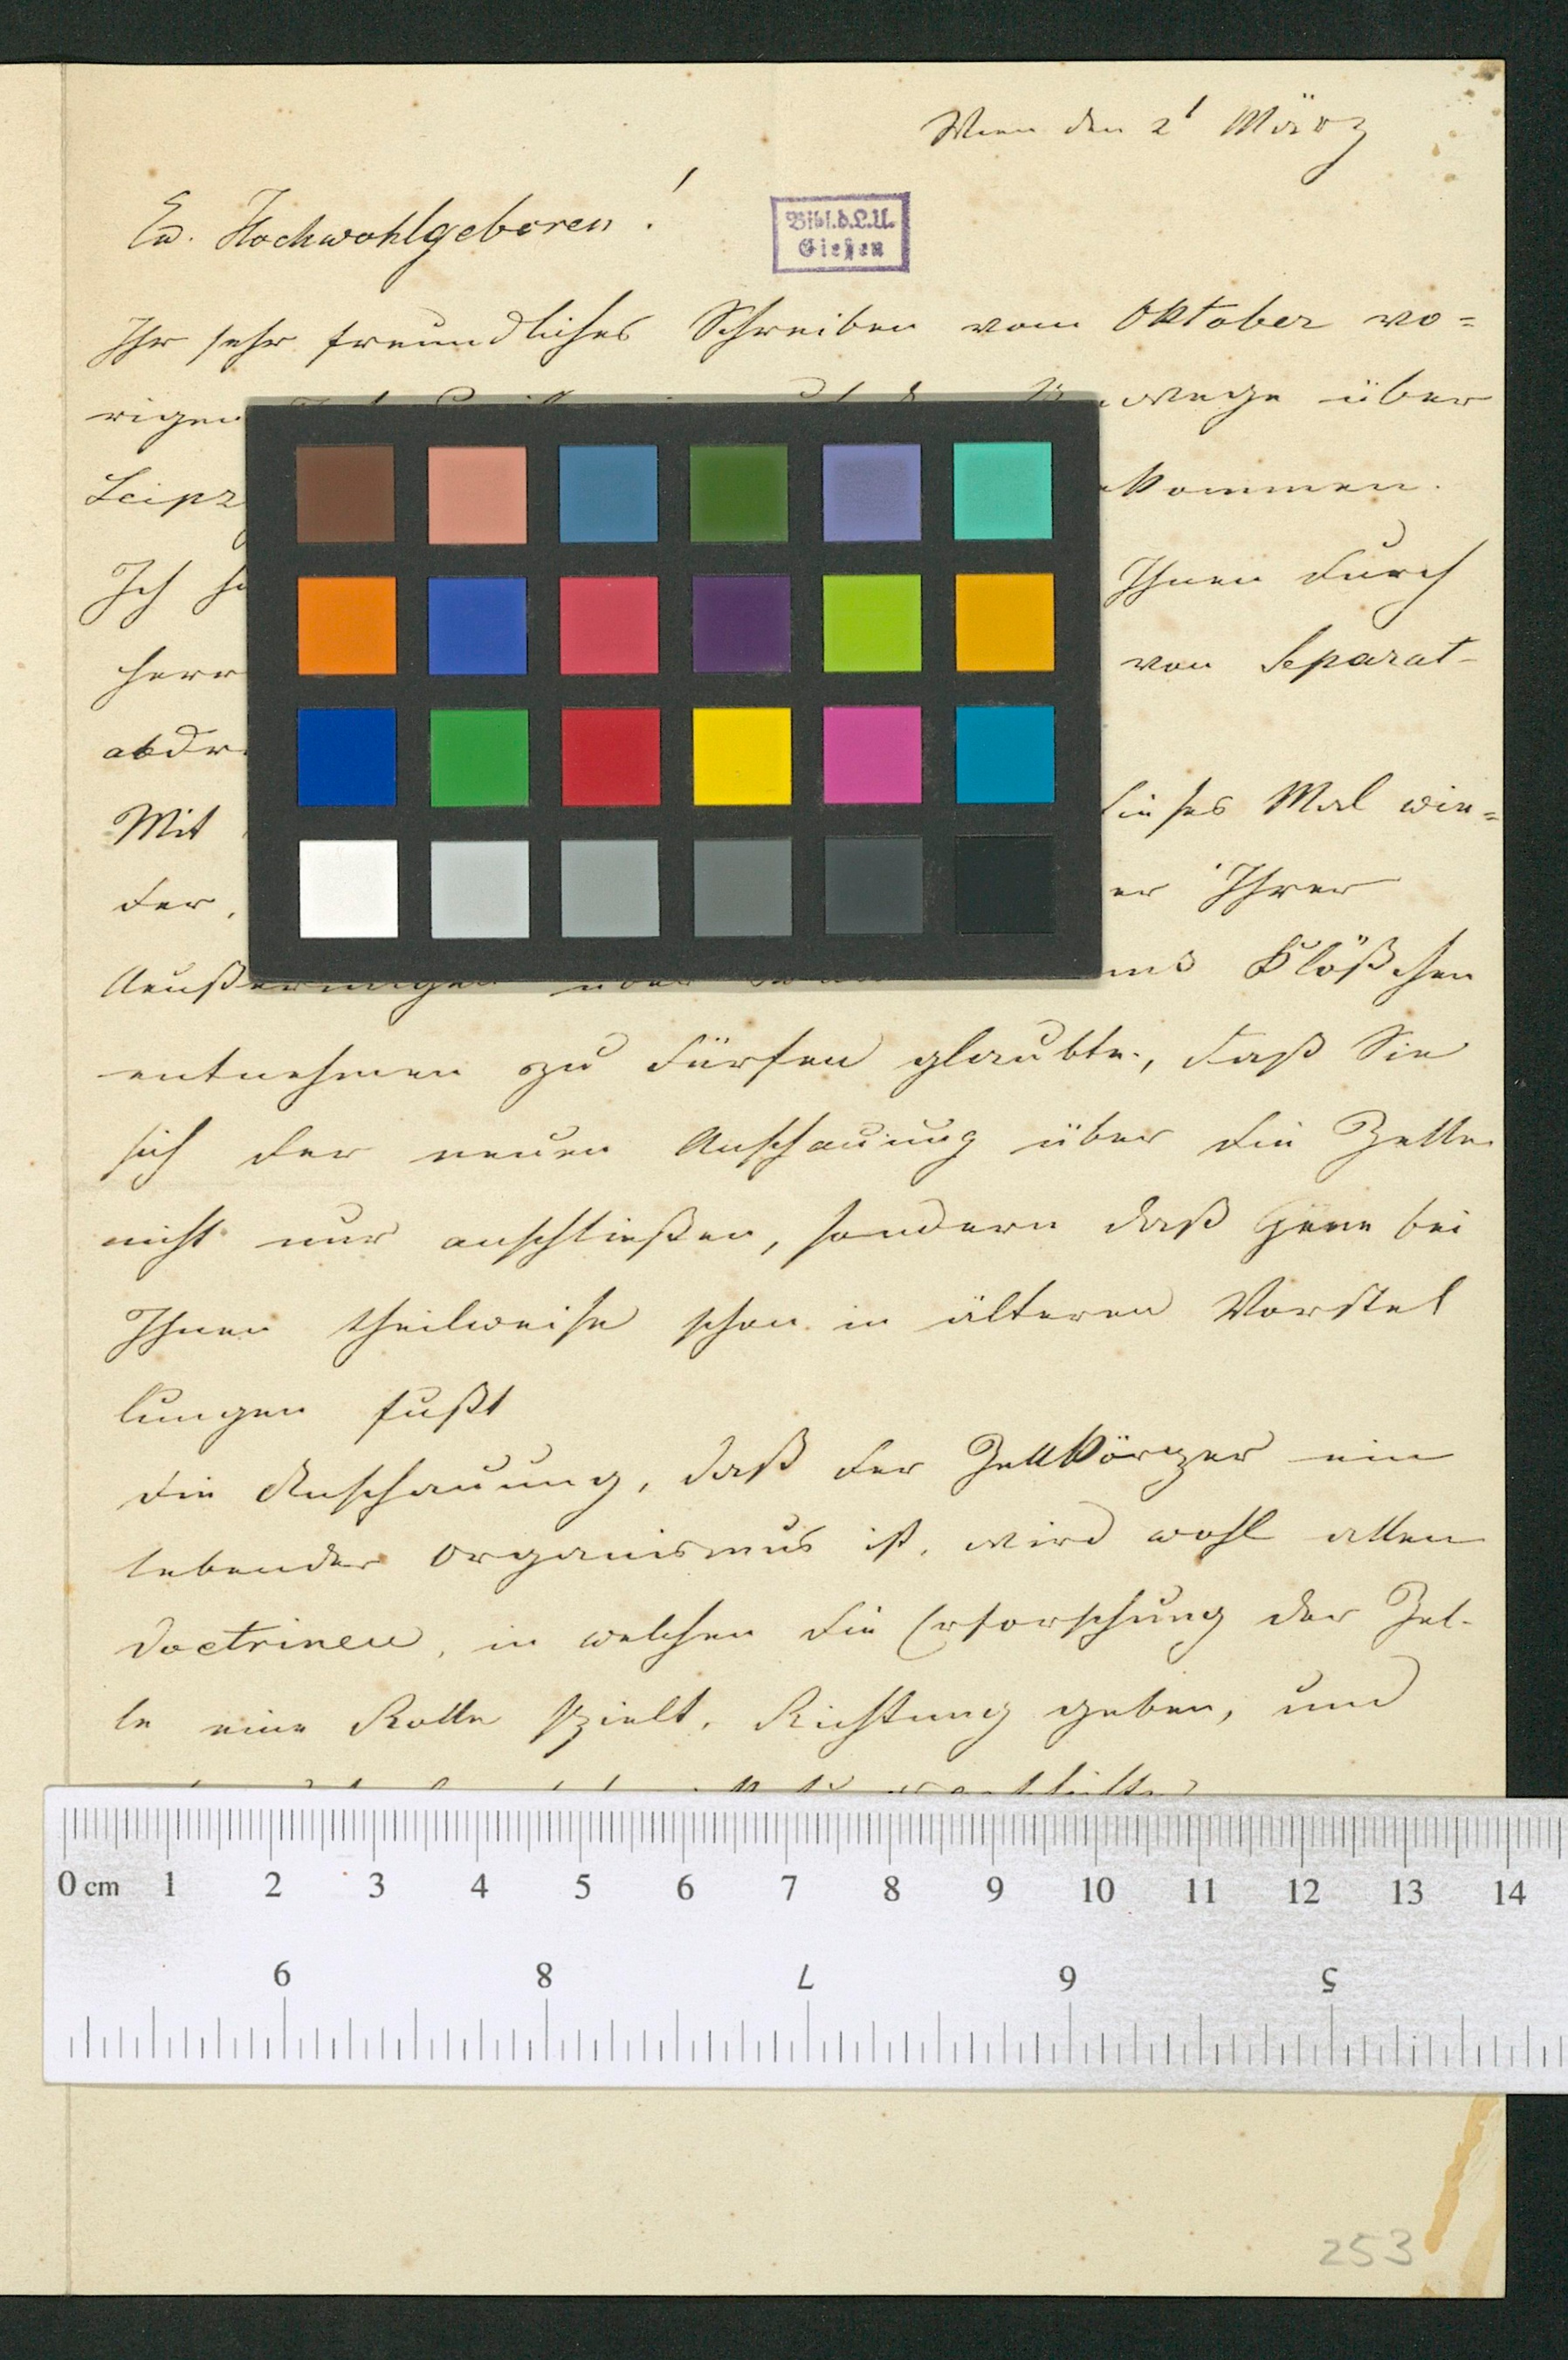 Wien den 21 März
Ew. Hochwohlgeboren!
Bibl.d.L.U.
Gießen
Ihr sehr freundliches Schreiben vom Oktober vo=
rigen wege über
Leipz kommen.
Ich Ihnen durch
Herr von Separat-
abdr
Mit dieses Mal wie=
der, Ihrer
Aeußerungen über und Klößchen
entnehmen zu dürfen glaubte, daß Sie
sich der neuen Anschauung über die Zelle
nicht nur anschließen, sondern daß jene bei
Ihnen theilweise schon in älteren Vorstel
lungen fußt
Die Anschauung, daß der Zellkörper ein
lebender Organismus ist, wird wohl allen
Doctrinen, in welchen die Erforschung der Zel-
le eine Rolle spielt, Richtung geben, und
0 cm 1 2 3 4 5 6 7 8 9 10 11 12 13 14
9 8 7 6 5
253